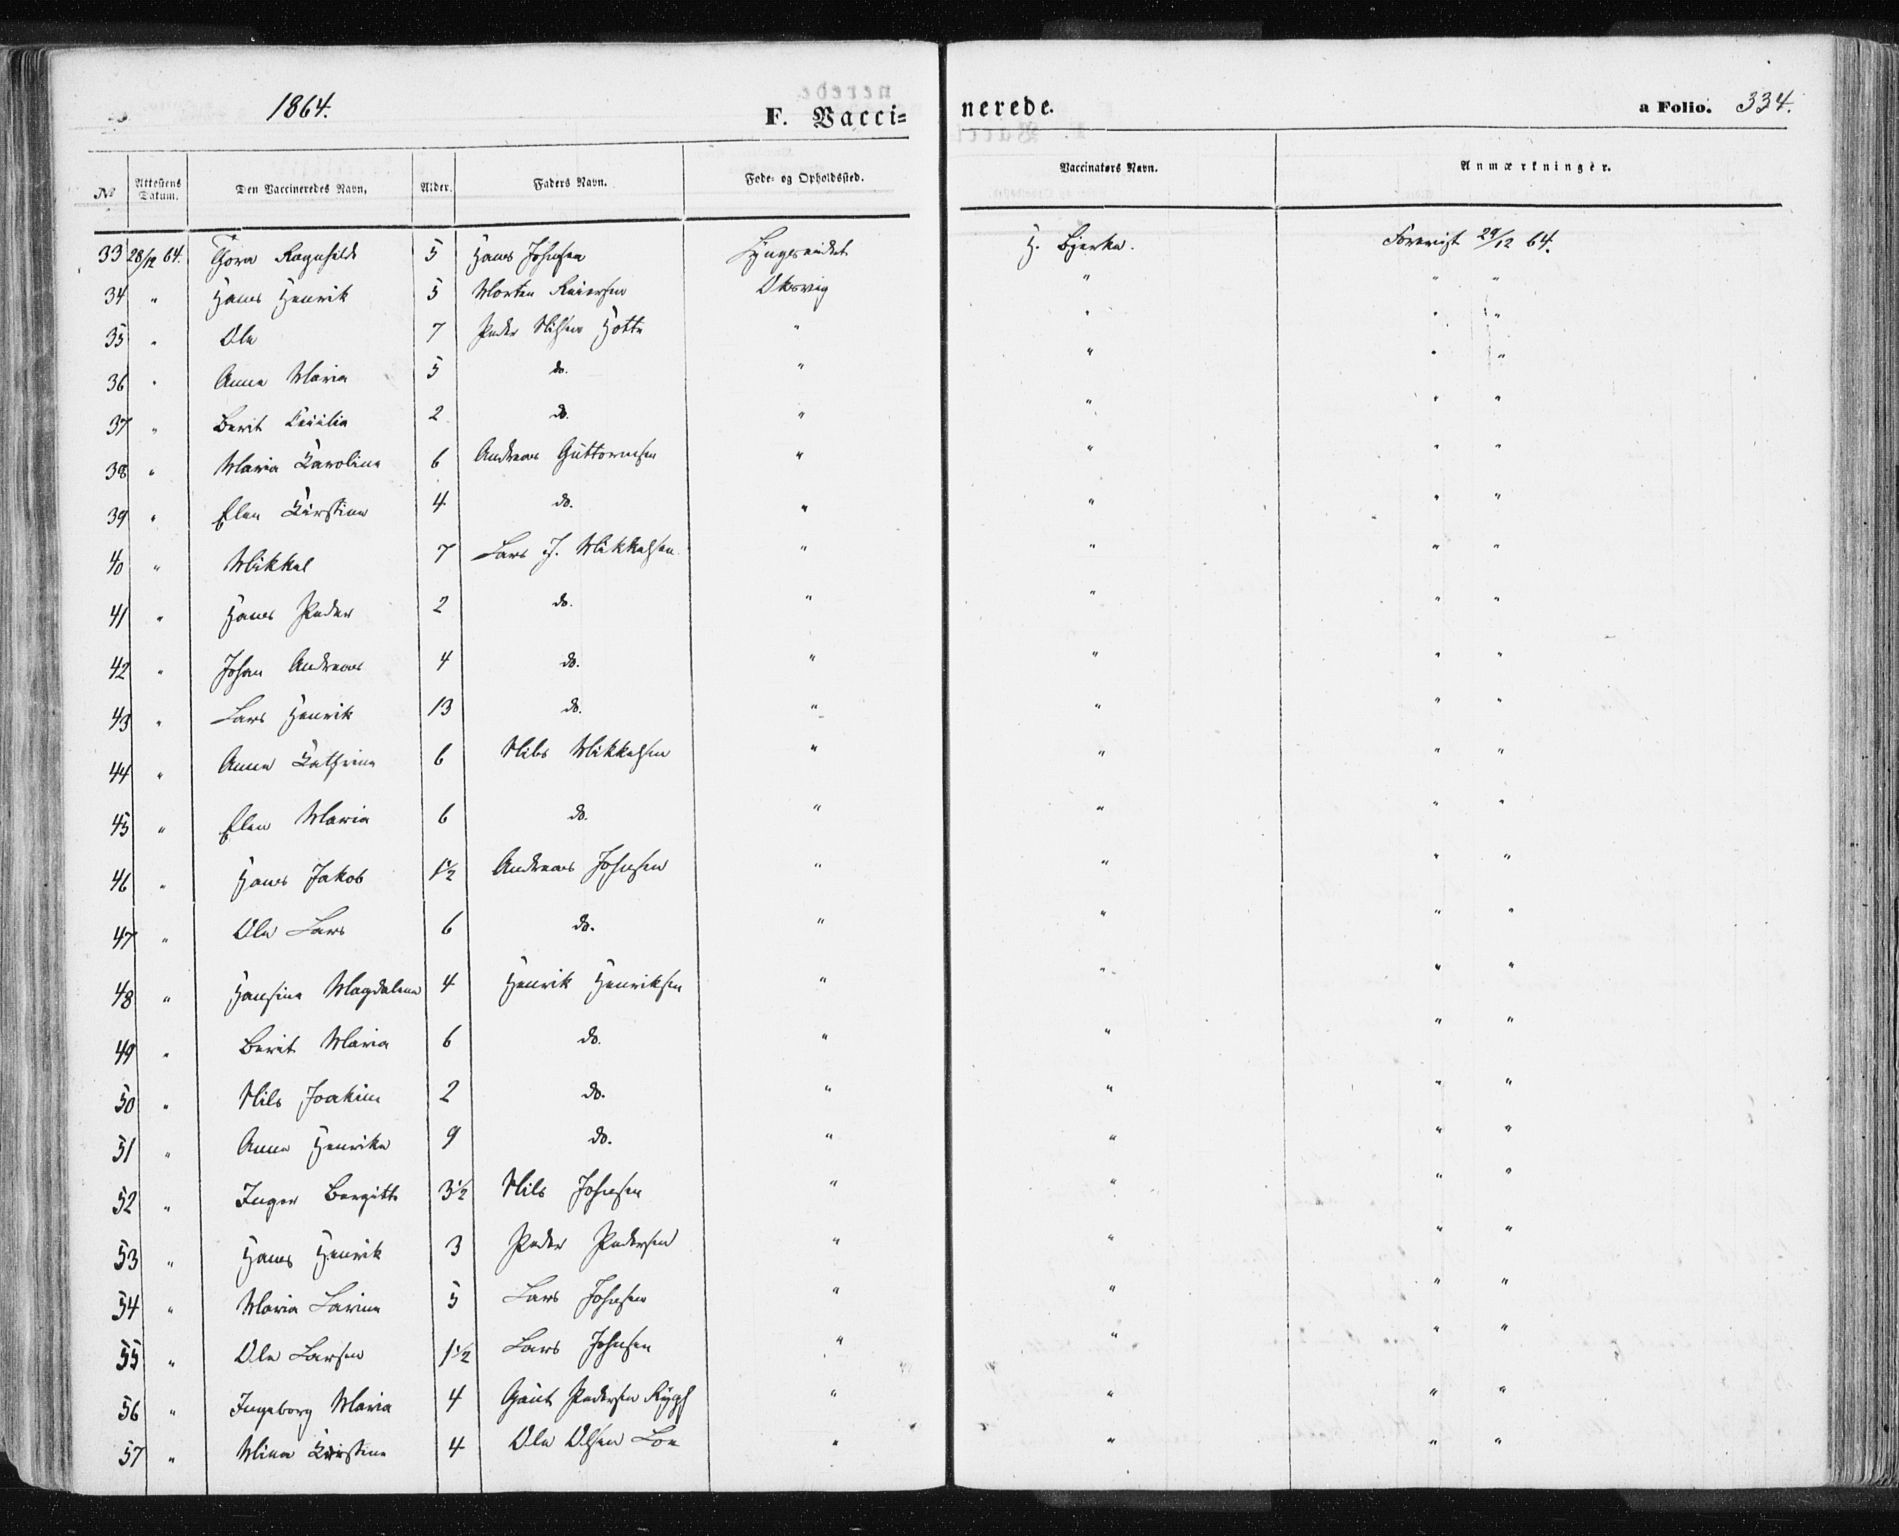 1864.
F. Vaccinerede.
a Folio. 334.
No Attestens Datum. Den Vaccineredes Navn. Alder. Faders Navn. Føde- og Opholdssted. Vaccinators Navn. Anmærkninger.
33 28/12 64. Thora Ragnhild 5 Hans Johnsen Lyngseidet H. Bjerke. Foreviist 29/12 64.
34 " Hans Henrik 5 Morten Reiersen Oksvig " " "
35 " Ole 7 Peder Nilsen Hotte " " " "
36 " Anne Maria 5 do. " " " "
37 " Berit Cecilia 2 do. " " " "
38 " Maria Karoline 6 Andreas Guttormsen " " " "
39 " Elen Kirstine 4 do. " " " "
40 " Mikkel 7 Lars J. Mikkelsen " " " "
41 " Hans Peder 2 do. " " " "
42 " Johan Andreas 4 do. " " " "
43 " Lars Henrik 13 do. " " " "
44 " Anne Kathrine 6 Nils Mikkelsen " " " "
45 " Elen Maria 6 do. " " " "
46 " Hans Jakob 1½ Andreas Johnsen " " " "
47 " Ole Lars 6 do. " " " "
48 " Hansine Magdalene 4 Henrik Henriksen " " " "
49 " Berit Maria 6 do. " " " "
50 " Nils Joakim 2 do. " " " "
51 " Anne Henrike 9 do. " " " "
52 " Inger Bergitte 3½ Nils Johnsen " " " "
53 " Hans Henrik 3 Peder Pedersen " " " "
54 " Maria Larine 5 Lars Johnsen " " " "
55 " Ole Larsen 1½ Lars Johnsen " " " "
56 " Ingeborg Maria 4 Gaut Pedersen " " " "
57 " Mina Kirstine 4 Ole Olsen " " " "